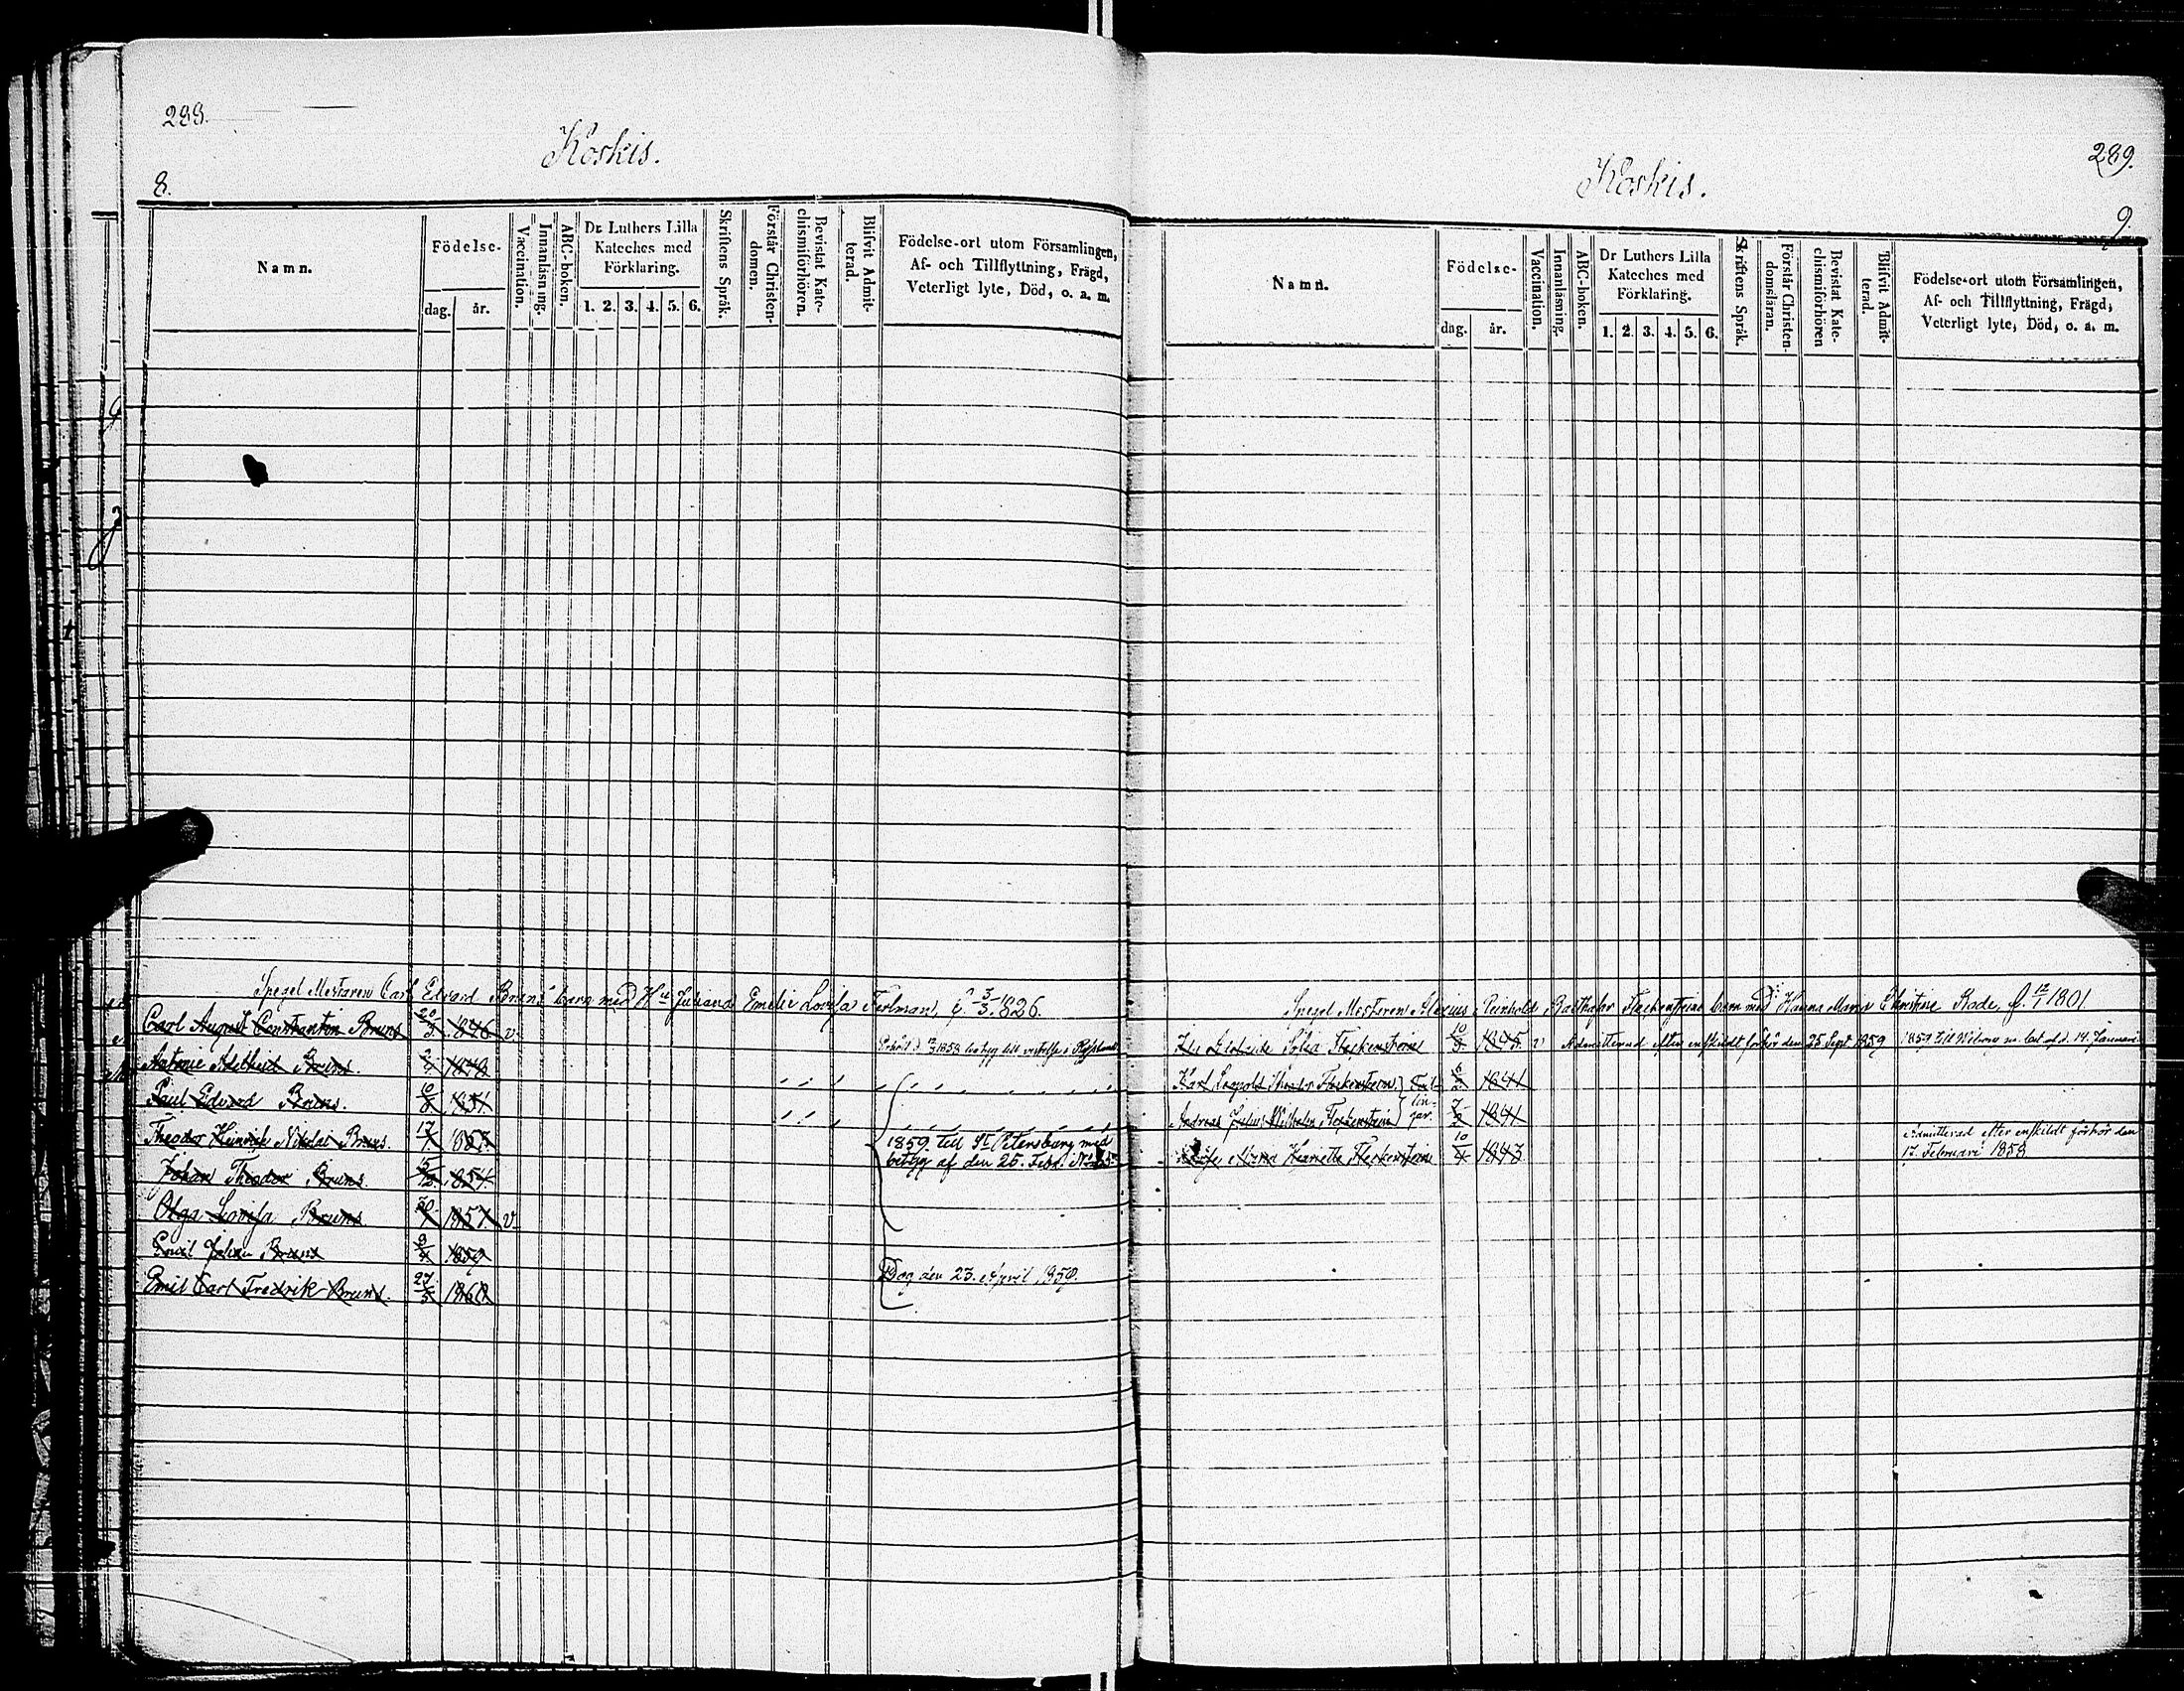 288.
Koskis.
8.
Namn.
Födelse-
dag.
år.
Vaccination.
Innanläsning.
ABC-boken.
Dr Luthers Lilla
Kateches med
Förklaring.
1. 2. 3. 4. 5. 6.
Skriftens Språk.
Förstår Christen-
domen.
Bevistat Kate-
chismiförhören.
Blifvit Admit-
terad.
Födelse-ort utom Församlingen,
Af- och Tillflyttning, Frägd,
Veterligt lyte, Död, o. a. m.
Spegel Mestaren Carl Edvard Bruns' barn med Juliana Emelie Lovisa Ferlman, f. 3/3 1826.
Carl August Constantin Bruns 20/3 1846 v.
Antonie Adelheid Bruns. 1848
Paul Edvard Bruns. 10/8 1851
Theodor Heinrich Nikolai Bruns. 17/1
1859 till St Petersburg med
betyg af den 25. Febr.
Johan Theodor Bruns. 1854
Olga Lovisa Bruns 1857 v
Emil Johan Bruns 1859
Dog den 23. April 1859.
Emil Carl Fredrik Bruns. 27/5 1860
289.
Koskis.
9.
Namn.
Födelse-
dag.
år.
Vaccination.
Innanläsning.
ABC-boken.
Dr Luthers Lilla
Kateches med
Förklaring.
1. 2. 3. 4. 5. 6.
Skriftens Språk.
Förstår Christen-
domsläran.
Bevistat Kate-
chismiförhören
Blifvit Admit-
terad.
Födelse-ort utom Församlingen,
Af- och Tillflyttning, Frägd,
Veterligt lyte, Död, o. a. m.
Spegel Mesteren Alexius Reinhold Balthasar Fleckensteins barn med Hanna Maria Christine Rode, f. 12/1 1801
Ida Adelaide Sofia Fleckenstein 10/9 1845 v Admitterad efter enskildt förhör den 25 Sept 1859 1859 till Wiborg m. bet. af d. 14. Januari
Karl Leopold Theodor Fleckenstein Tvil- 1841
Andreas Julius Wilhelm Fleckenstein lin-
gar. 1841
Anna Henriette Fleckenstein 10/4 1843
Admitterad efter enskildt förhör den
17. Februari 1858